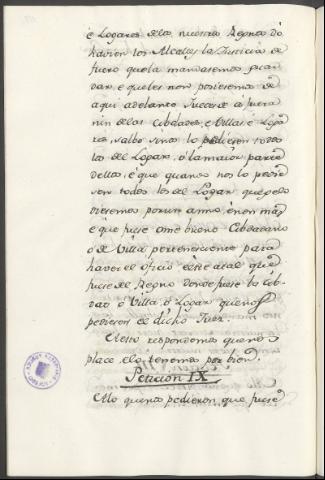 é Logares delos nuestros Regnos dò
havien los Alcalles, la Justicia de
fuero quela mandasemos guar
dar, e queles non posieramos de
aqui adelante Jueces de afuera
nin delas Cibdades, e Villas, é Loga
res, salbo si nos lo pedieren todos
los del Logar, ò la maior parte
dellos, é que quando nos lo pedie
sen todos los del Logar, quegelo
diesemos por un anno, é non mas
é que fuese ome bueno Cibdadano
ò de Villa perteneciente para
haver el oficio, e este atal que
fuese del Regno donde fuese la Cib
dad ò Villa, ò Logar que nos
pedieren el dicho Juez.
Aesto respondemos que nos
place ello, é tenemos por bien.
Peticion IX.
Alo que nos pedieron que fuese